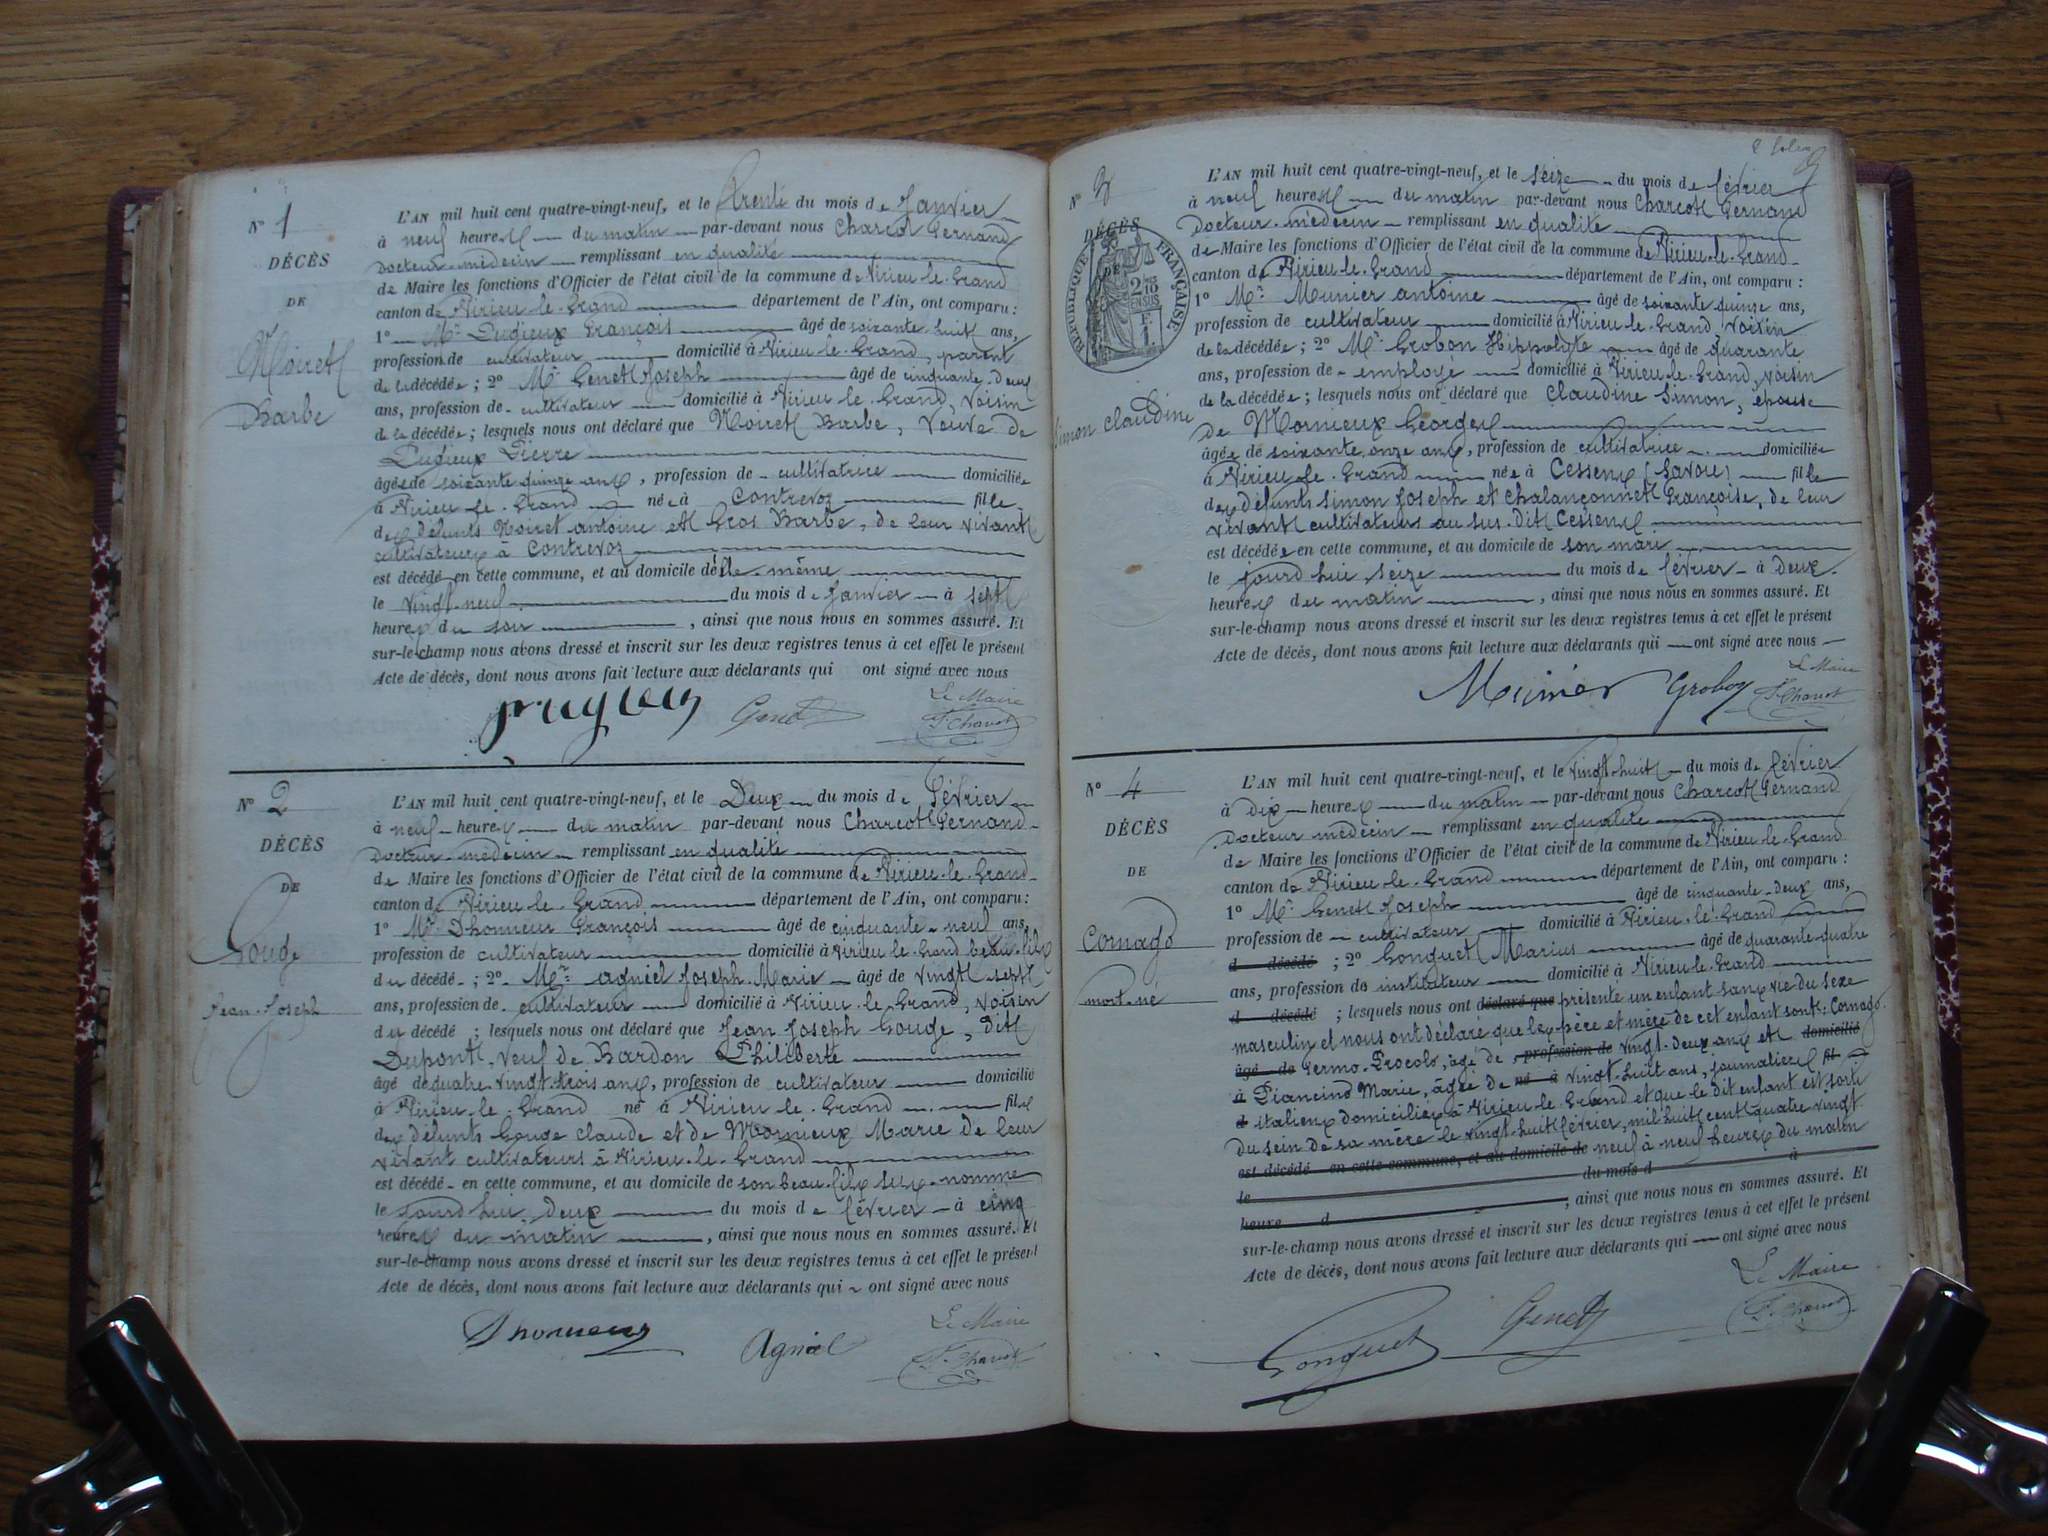 N° 1
DÉCÈS
DE
Noiret
Barbe
L'AN mil huit cent quatre-vingt-neuf, et le trente du mois de Janvier
à neuf heures du matin par-devant nous Charcot Fernand
Docteur-médecin remplissant en qualité
de Maire les fonctions d'Officier de l'état civil de la commune de Virieu-le-Grand
canton de Virieu-le-Grand département de l'Ain, ont comparu :
1° Mr Dugieux François âgé de soixante-huit ans,
profession de cultivateur domicilié à Virieu-le-Grand, parent
de la décédée ; 2° Mr Genet Joseph âgé de cinquante-deux
ans, profession de cultivateur domicilié à Virieu-le-Grand, voisin
de la décédée ; lesquels nous ont déclaré que Noiret Barbe, veuve de
Dugieux Pierre
âgée de soixante quinze ans, profession de cultivatrice domiciliée
à Virieu-le-Grand née à Contrevoz fille
des défunts Noiret antoine et Gros Barbe, de leur vivant
cultivateurs à Contrevoz
est décédé en cette commune, et au domicile d'elle-même
le vingt-neuf du mois de Janvier à sept
heures du soir , ainsi que nous nous en sommes assuré. Et
sur-le-champ nous avons dressé et inscrit sur les deux registres tenus à cet effet le présent
Acte de décès, dont nous avons fait lecture aux déclarants qui ont signé avec nous
Genet
Le Maire
F. Charcot
N° 2
DÉCÈS
DE
Gouge
Jean-Joseph
L'AN mil huit cent quatre-vingt-neuf, et le Deux du mois de Février
à neuf heures du matin par-devant nous Charcot Fernand
Docteur-médecin remplissant en qualité
de Maire les fonctions d'Officier de l'état civil de la commune de Virieu-le-Grand
canton de Virieu-le-Grand département de l'Ain, ont comparu :
1° Mr Dhonneur François âgé de cinquante-neuf ans,
profession de cultivateur domicilié à Virieu-le-Grand beau-fils
du décédé ; 2° Mr agniel Joseph-Marie âgé de vingt-sept
ans, profession de cultivateur domicilié à Virieu-le-Grand, voisin
du décédé ; lesquels nous ont déclaré que Jean Joseph Gouge, dit
Dupont, veuf de Bardon Philiberte
âgé de quatre-vingt-trois ans, profession de cultivateur domicilié
à Virieu-le-Grand né à Virieu-le-Grand fils
des défunts Gouge Claude et de Mornieux Marie de leur
vivant cultivateurs à Virieu-le-Grand
est décédé en cette commune, et au domicile de son beau-fils sus-nommé
le jourd'hui deux du mois de février à cinq
heures du matin , ainsi que nous nous en sommes assuré. Et
sur-le-champ nous avons dressé et inscrit sur les deux registres tenus à cet effet le présent
Acte de décès, dont nous avons fait lecture aux déclarants qui ont signé avec nous
Dhonneur
Agniel
Le Maire
F. Charcot
N° 3
DÉCÈS
DE
RÉPUBLIQUE FRANÇAISE
2/10 EN SUS
Simon Claudine
L'AN mil huit cent quatre-vingt-neuf, et le seize du mois de février
à neuf heures du matin par-devant nous Charcot Fernand
Docteur-médecin remplissant en qualité
de Maire les fonctions d'Officier de l'état civil de la commune de Virieu-le-Grand
canton de Virieu-le-Grand département de l'Ain, ont comparu :
1° Mr Munier antoine âgé de soixante quinze ans,
profession de cultivateur domicilié à Virieu-le-Grand, voisin
de la décédée ; 2° Mr Grobon Hippolyte âgé de quarante
ans, profession de employé domicilié à Virieu-le-Grand, voisin
de la décédée ; lesquels nous ont déclaré que Claudine Simon, épouse
de Mornieux Georges
âgée de soixante onze ans, profession de cultivatrice domiciliée
à Virieu-le-Grand née à Cessens (Savoie) fille
des défunts Simon Joseph et Chalançonnet Françoise, de leur
vivant cultivateurs au sus-dit Cessens
est décédée en cette commune, et au domicile de son mari
le jourd'hui seize du mois de février à deux
heures du matin , ainsi que nous nous en sommes assuré. Et
sur-le-champ nous avons dressé et inscrit sur les deux registres tenus à cet effet le présent
Acte de décès, dont nous avons fait lecture aux déclarants qui ont signé avec nous
Munier
Grobon
Le Maire
F. Charcot
N° 4
DÉCÈS
DE
Comago
mort-né
L'AN mil huit cent quatre-vingt-neuf, et le vingt-huit du mois de février
à dix heures du matin par-devant nous Charcot Fernand
Docteur médecin remplissant en qualité
de Maire les fonctions d'Officier de l'état civil de la commune de Virieu-le-Grand
canton de Virieu-le-Grand département de l'Ain, ont comparu :
1° Mr Genet Joseph âgé de cinquante-deux ans,
profession de cultivateur domicilié à Virieu-le-Grand
d décédé ; 2° Gonguet Marius âgé de quarante-quatre
ans, profession de instituteur domicilié à Virieu-le-Grand
d décédé ; lesquels nous ont déclaré que présenté un enfant sans vie du sexe
masculin et nous ont déclaré que les père et mère de cet enfant sont : Comago
âgé de Fermo-Procolo, âgé de profession de vingt-deux ans et domicilié
à Piancino Marie, âgée de né à vingt-huit ans, journaliers fil
d italiens domiciliés à Virieu-le-Grand et que le dit enfant est sorti
du sein de sa mère le vingt-huit février, mil huit cent quatre vingt
est décédé en cette commune, et au domicile de neuf à neuf heures du matin
le du mois d à
heure d , ainsi que nous nous en sommes assuré. Et
sur-le-champ nous avons dressé et inscrit sur les deux registres tenus à cet effet le présent
Acte de décès, dont nous avons fait lecture aux déclarants qui ont signé avec nous
Gonguet
Genet
Le Maire
F. Charcot